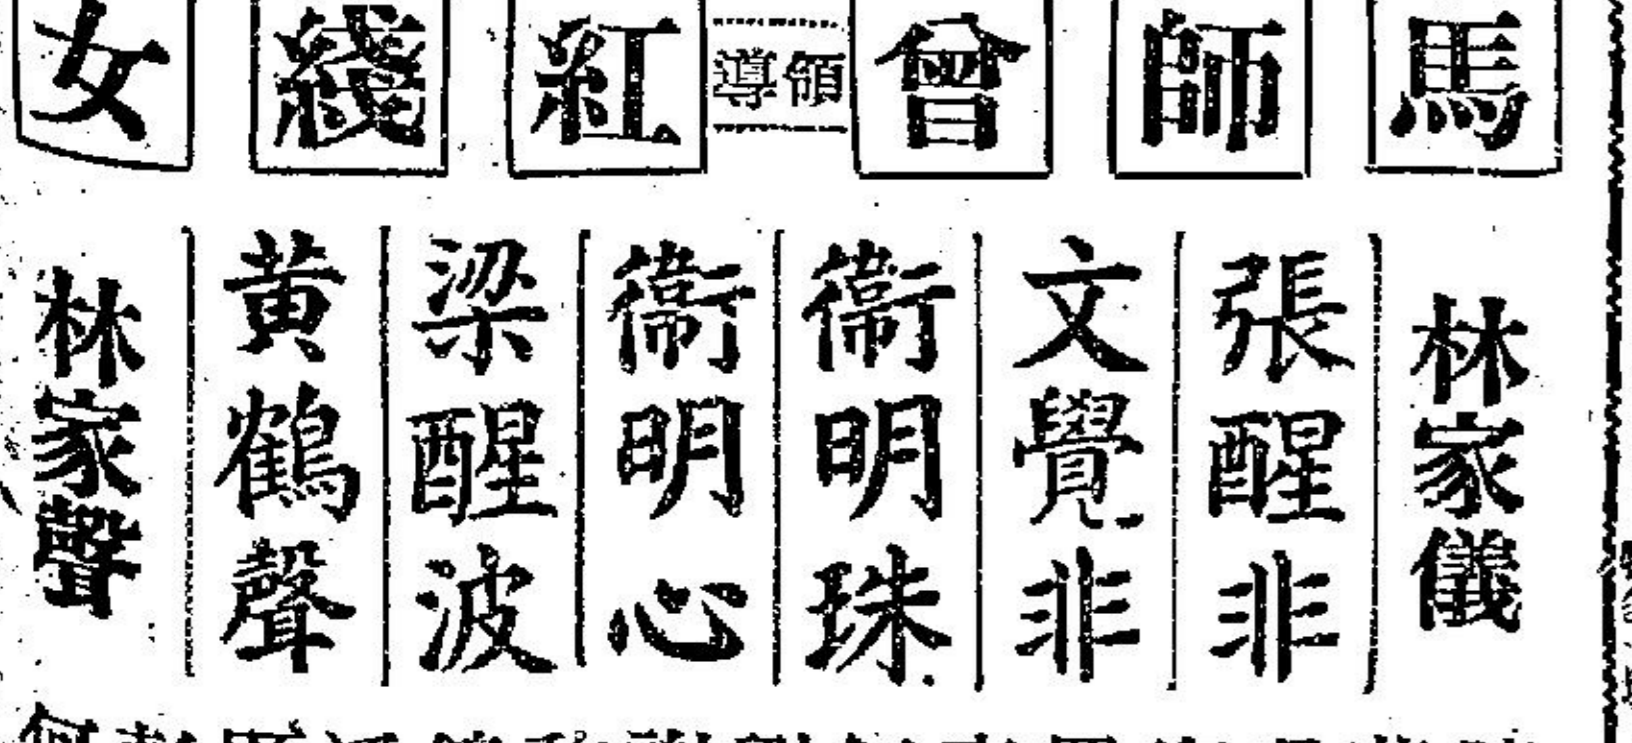 馬師曾領導紅綫女
林家儀
張醒非
文覺非
衞明珠
衞明心
梁醒波
黄鶴聲
林家聲